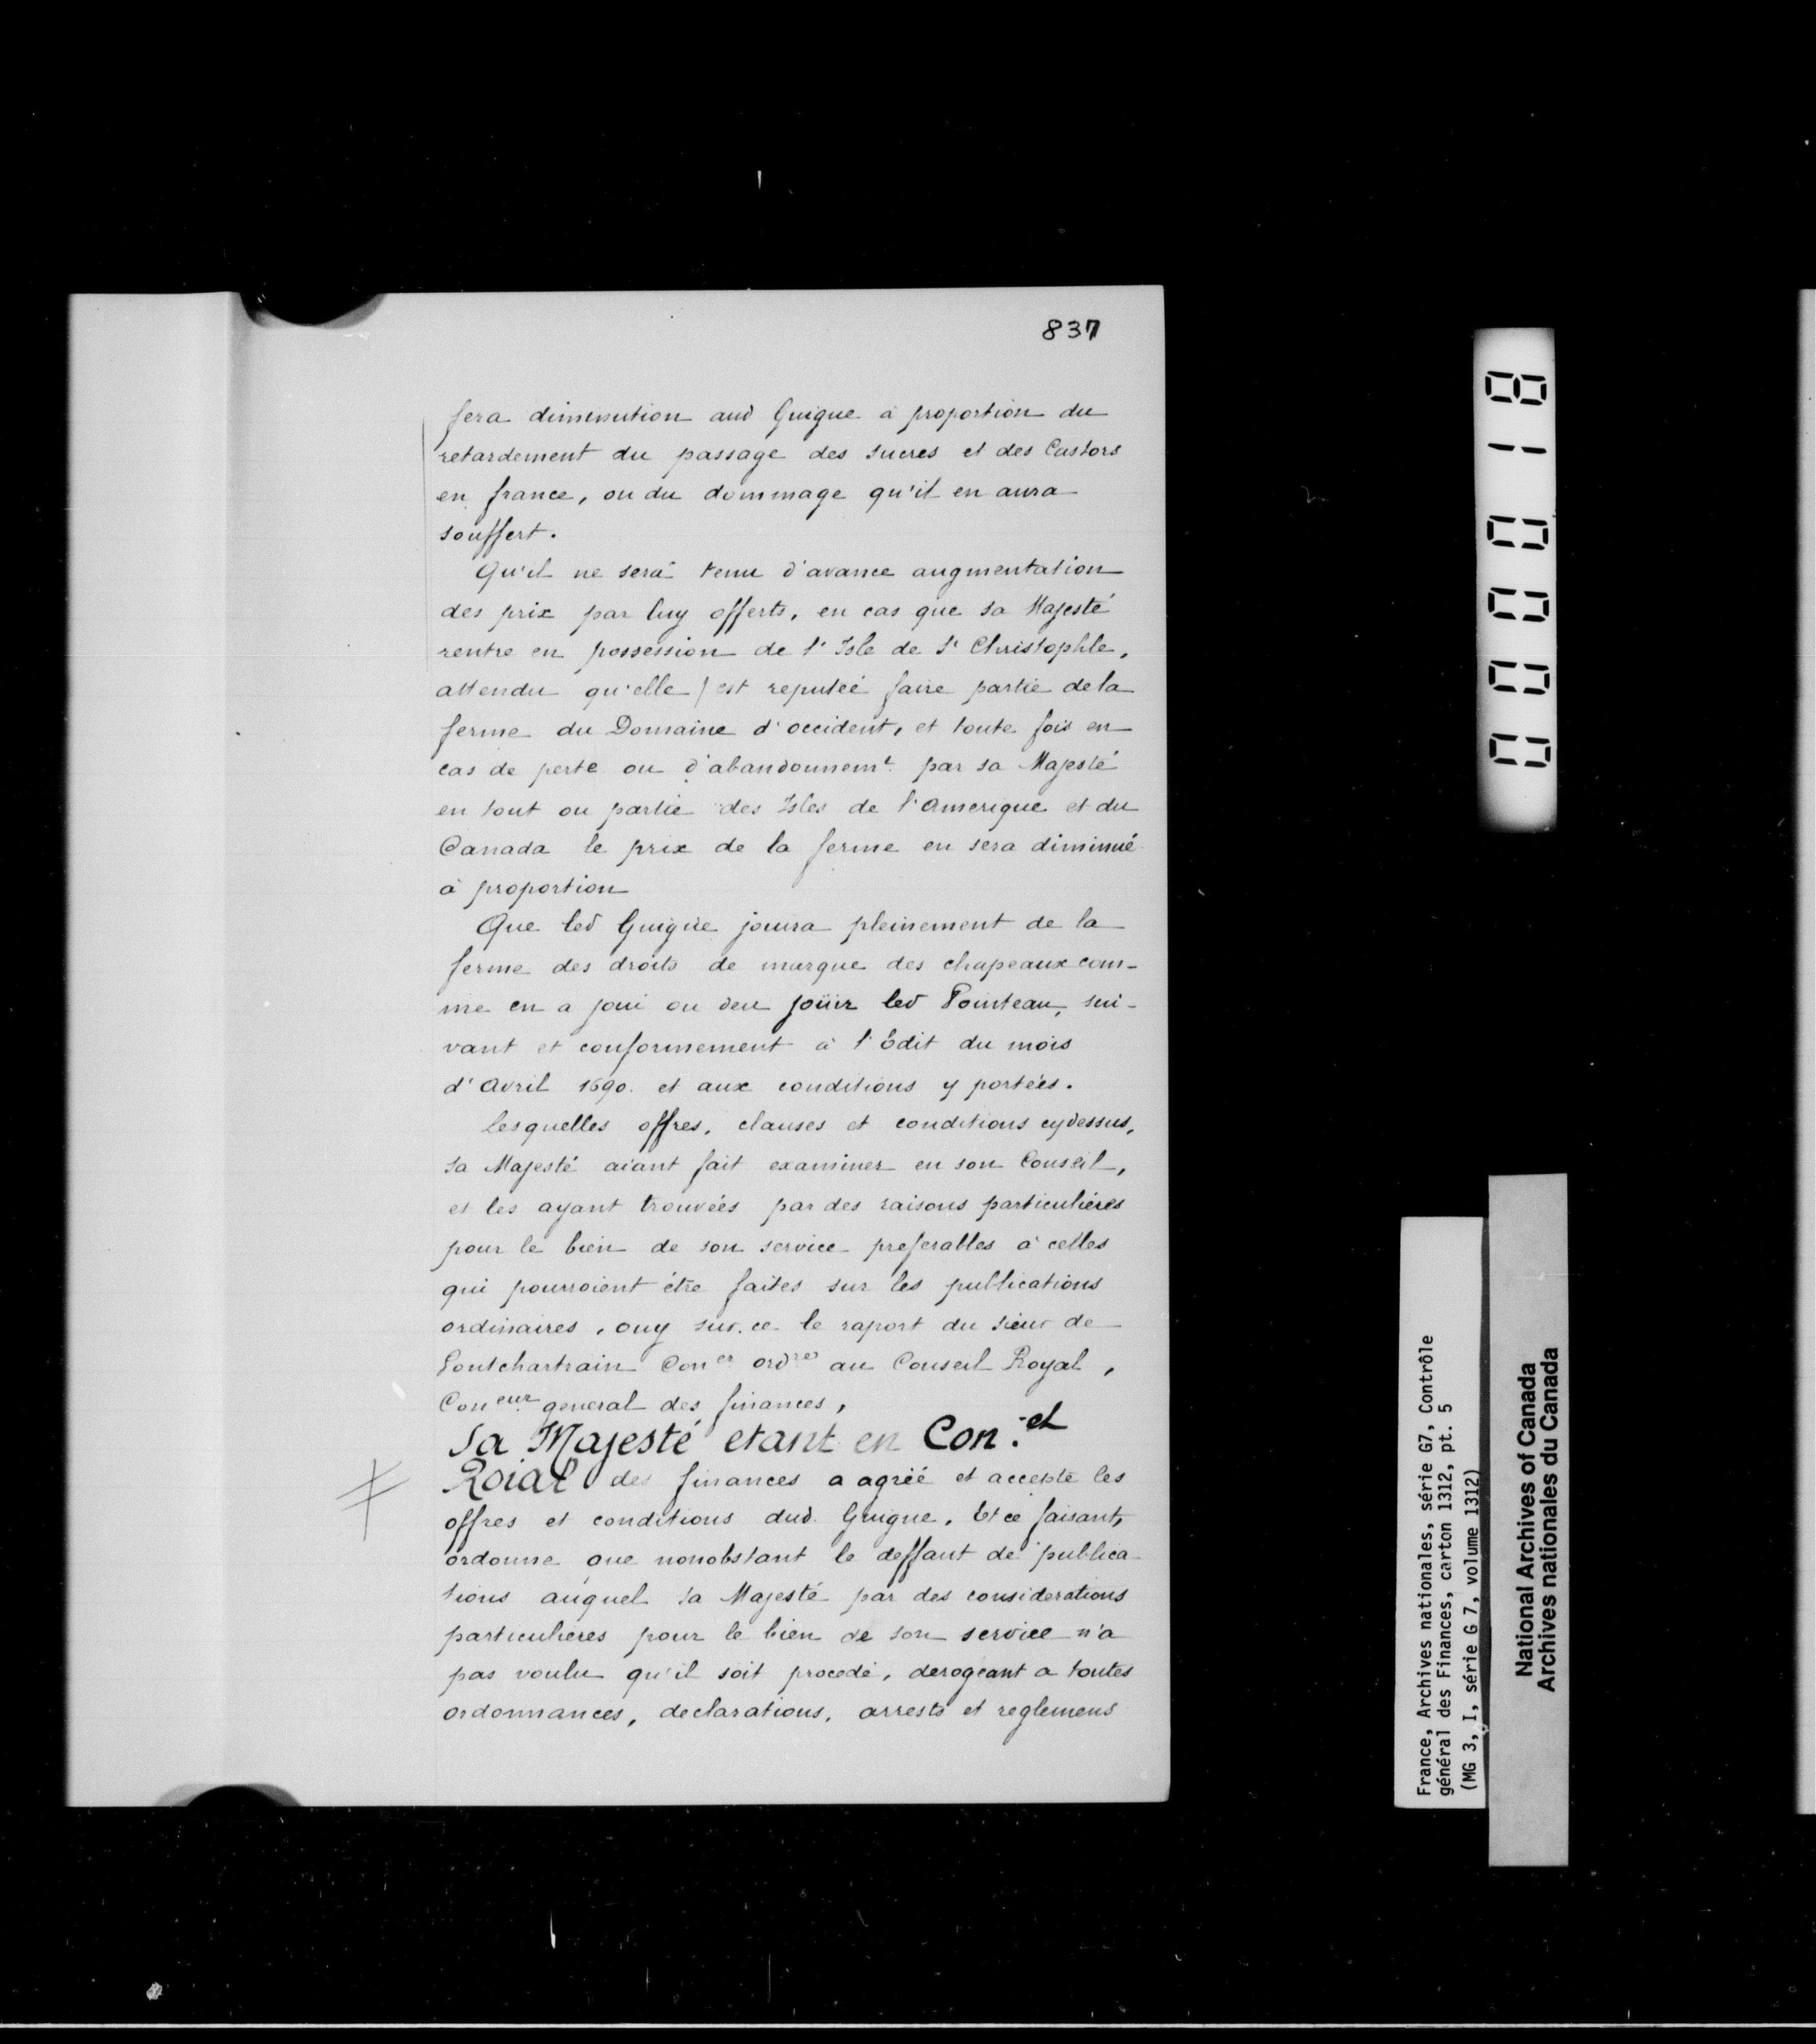 837
fera diminution aud Guigue à proportion du
retardement du passage des sucres et des Castors
en france, ou du dommage qu'il en aura
souffert.
Qu'il ne sera tenu d'avance augmentation
des prix par luy offerts, en cas que sa Majesté
rentre en possession de l'Isle de St Christophle,
attendu qu'elle est reputéé faire partie de la
ferme du Domaine d'occident, et toute fois en
cas de perte ou d'abandonnemt par sa Majesté
en tout ou partie des Isles de l'Amerique et du
Canada le prix de la ferme en sera diminué
à proportion
Que led Guigue jouira pleinement de la
ferme des droits de marque des chapeaux com-
me en a joui ou deu joüir led Pointeau, sui-
vant et conformement à l'Edit du mois
d'Avril 1690. et aux conditions y portéés.
Lesquelles offres, clauses et conditions cydessus,
sa Majesté aiant fait examiner en son Conseil,
et les ayant trouvéés par des raisons particuliéres
pour le bien de son service preferables à celles
qui pourroient étre faites sur les publications
ordinaires, ouy sur ce le raport du sieur de
Pontchartrain Coner ordre au Conseil Royal,
Coneur general des finances,
Sa Majesté etant en Con.el
Roial des finances a agréé et accepté les
offres et conditions dud. Guigue, Et ce faisant,
ordonne que nonobstant le deffaut de publica-
tions auquel sa Majesté par des considerations
particulieres pour le bien de son service n'a
pas voulu qu'il soit procedé, derogeant a toutes
ordonnances, declarations, arrests et reglemens
0000118
France, Archives nationales, série G7, Contrôle
général des Finances, carton 1312, pt. 5
(MG 3, I, série G 7, volume 1312)
National Archives of Canada
Archives nationales du Canada